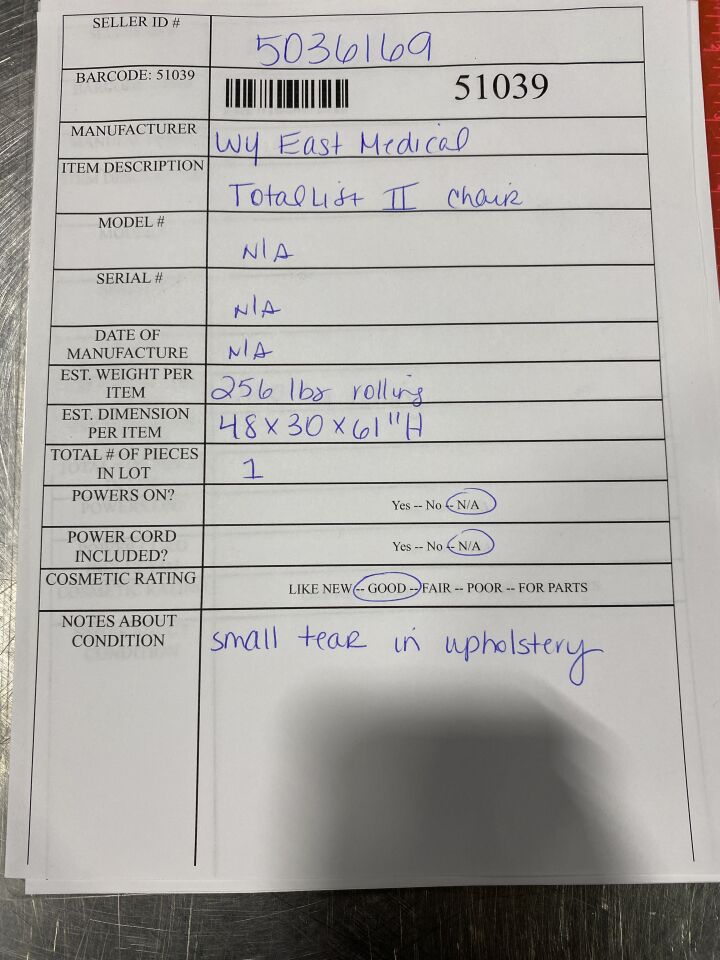 SELLER ID #
5036169
BARCODE: 51039
51039
MANUFACTURER
Wy East Medical
ITEM DESCRIPTION
Total Lift II Chair
MODEL #
N/A
SERIAL #
N/A
DATE OF
MANUFACTURE
N/A
EST. WEIGHT PER
ITEM
256 lbs rolling
EST. DIMENSION
PER ITEM
48 x 30 x 61"H
TOTAL # OF PIECES
IN LOT
1
POWERS ON?
Yes -- No -- N/A
POWER CORD
INCLUDED?
Yes -- No -- N/A
COSMETIC RATING
LIKE NEW -- GOOD -- FAIR -- POOR -- FOR PARTS
NOTES ABOUT
CONDITION
small tear in upholstery